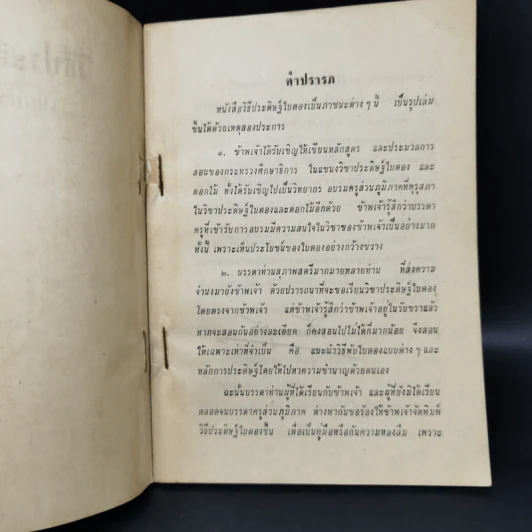 คำปรารภ
หนังสือวิธีประดิษฐ์ใบตองเป็นภาชนะต่าง ๆ นี้ เป็นรูปเล่ม
ขึ้นได้ด้วยเหตุสองประการ
๑. ข้าพเจ้าได้รับเชิญให้เขียนหลักสูตร และประมวลการ
สอนของกระทรวงศึกษาธิการ ในแขนงวิชาประดิษฐ์ใบตอง และ
ดอกไม้ ทั้งได้รับเชิญไปเป็นวิทยากร อบรมครูส่วนภูมิภาคที่คุรุสภา
ในวิชาประดิษฐ์ใบตองและดอกไม้อีกด้วย ข้าพเจ้ารู้สึกว่าบรรดา
ครูที่เข้ารับการอบรมมีความสนใจในวิชาของข้าพเจ้าเป็นอย่างมาก
ทั้งนี้ เพราะเห็นประโยชน์ของใบตองอย่างกว้างขวาง
๒. บรรดาท่านสุภาพสตรีมากมายหลายท่าน ที่ส่งความ
จำนงมายังข้าพเจ้า ด้วยปรารถนาที่จะขอเรียนวิชาประดิษฐ์ใบตอง
โดยตรงจากข้าพเจ้า แต่ข้าพเจ้ารู้สึกว่าข้าพเจ้าอยู่ในวัยชราแล้ว
หากจะสอนกันอย่างละเอียด ก็คงสอนไปไม่ได้กี่มากน้อย จึงสอน
ให้เฉพาะเท่าที่จำเป็น คือ แนะนำวิธีพับใบตองแบบต่าง ๆ และ
หลักการประดิษฐ์โดยให้ไปหาความชำนาญด้วยตนเอง
ฉะนั้นบรรดาท่านผู้ที่ได้เรียนกับข้าพเจ้า และผู้ที่ยังมิได้เรียน
ตลอดจนบรรดาครูส่วนภูมิภาค ต่างพากันขอร้องให้ข้าพเจ้าจัดพิมพ์
วิธีประดิษฐ์ใบตองขึ้น เพื่อเป็นคู่มือหรือกันความหลงลืม เพราะ